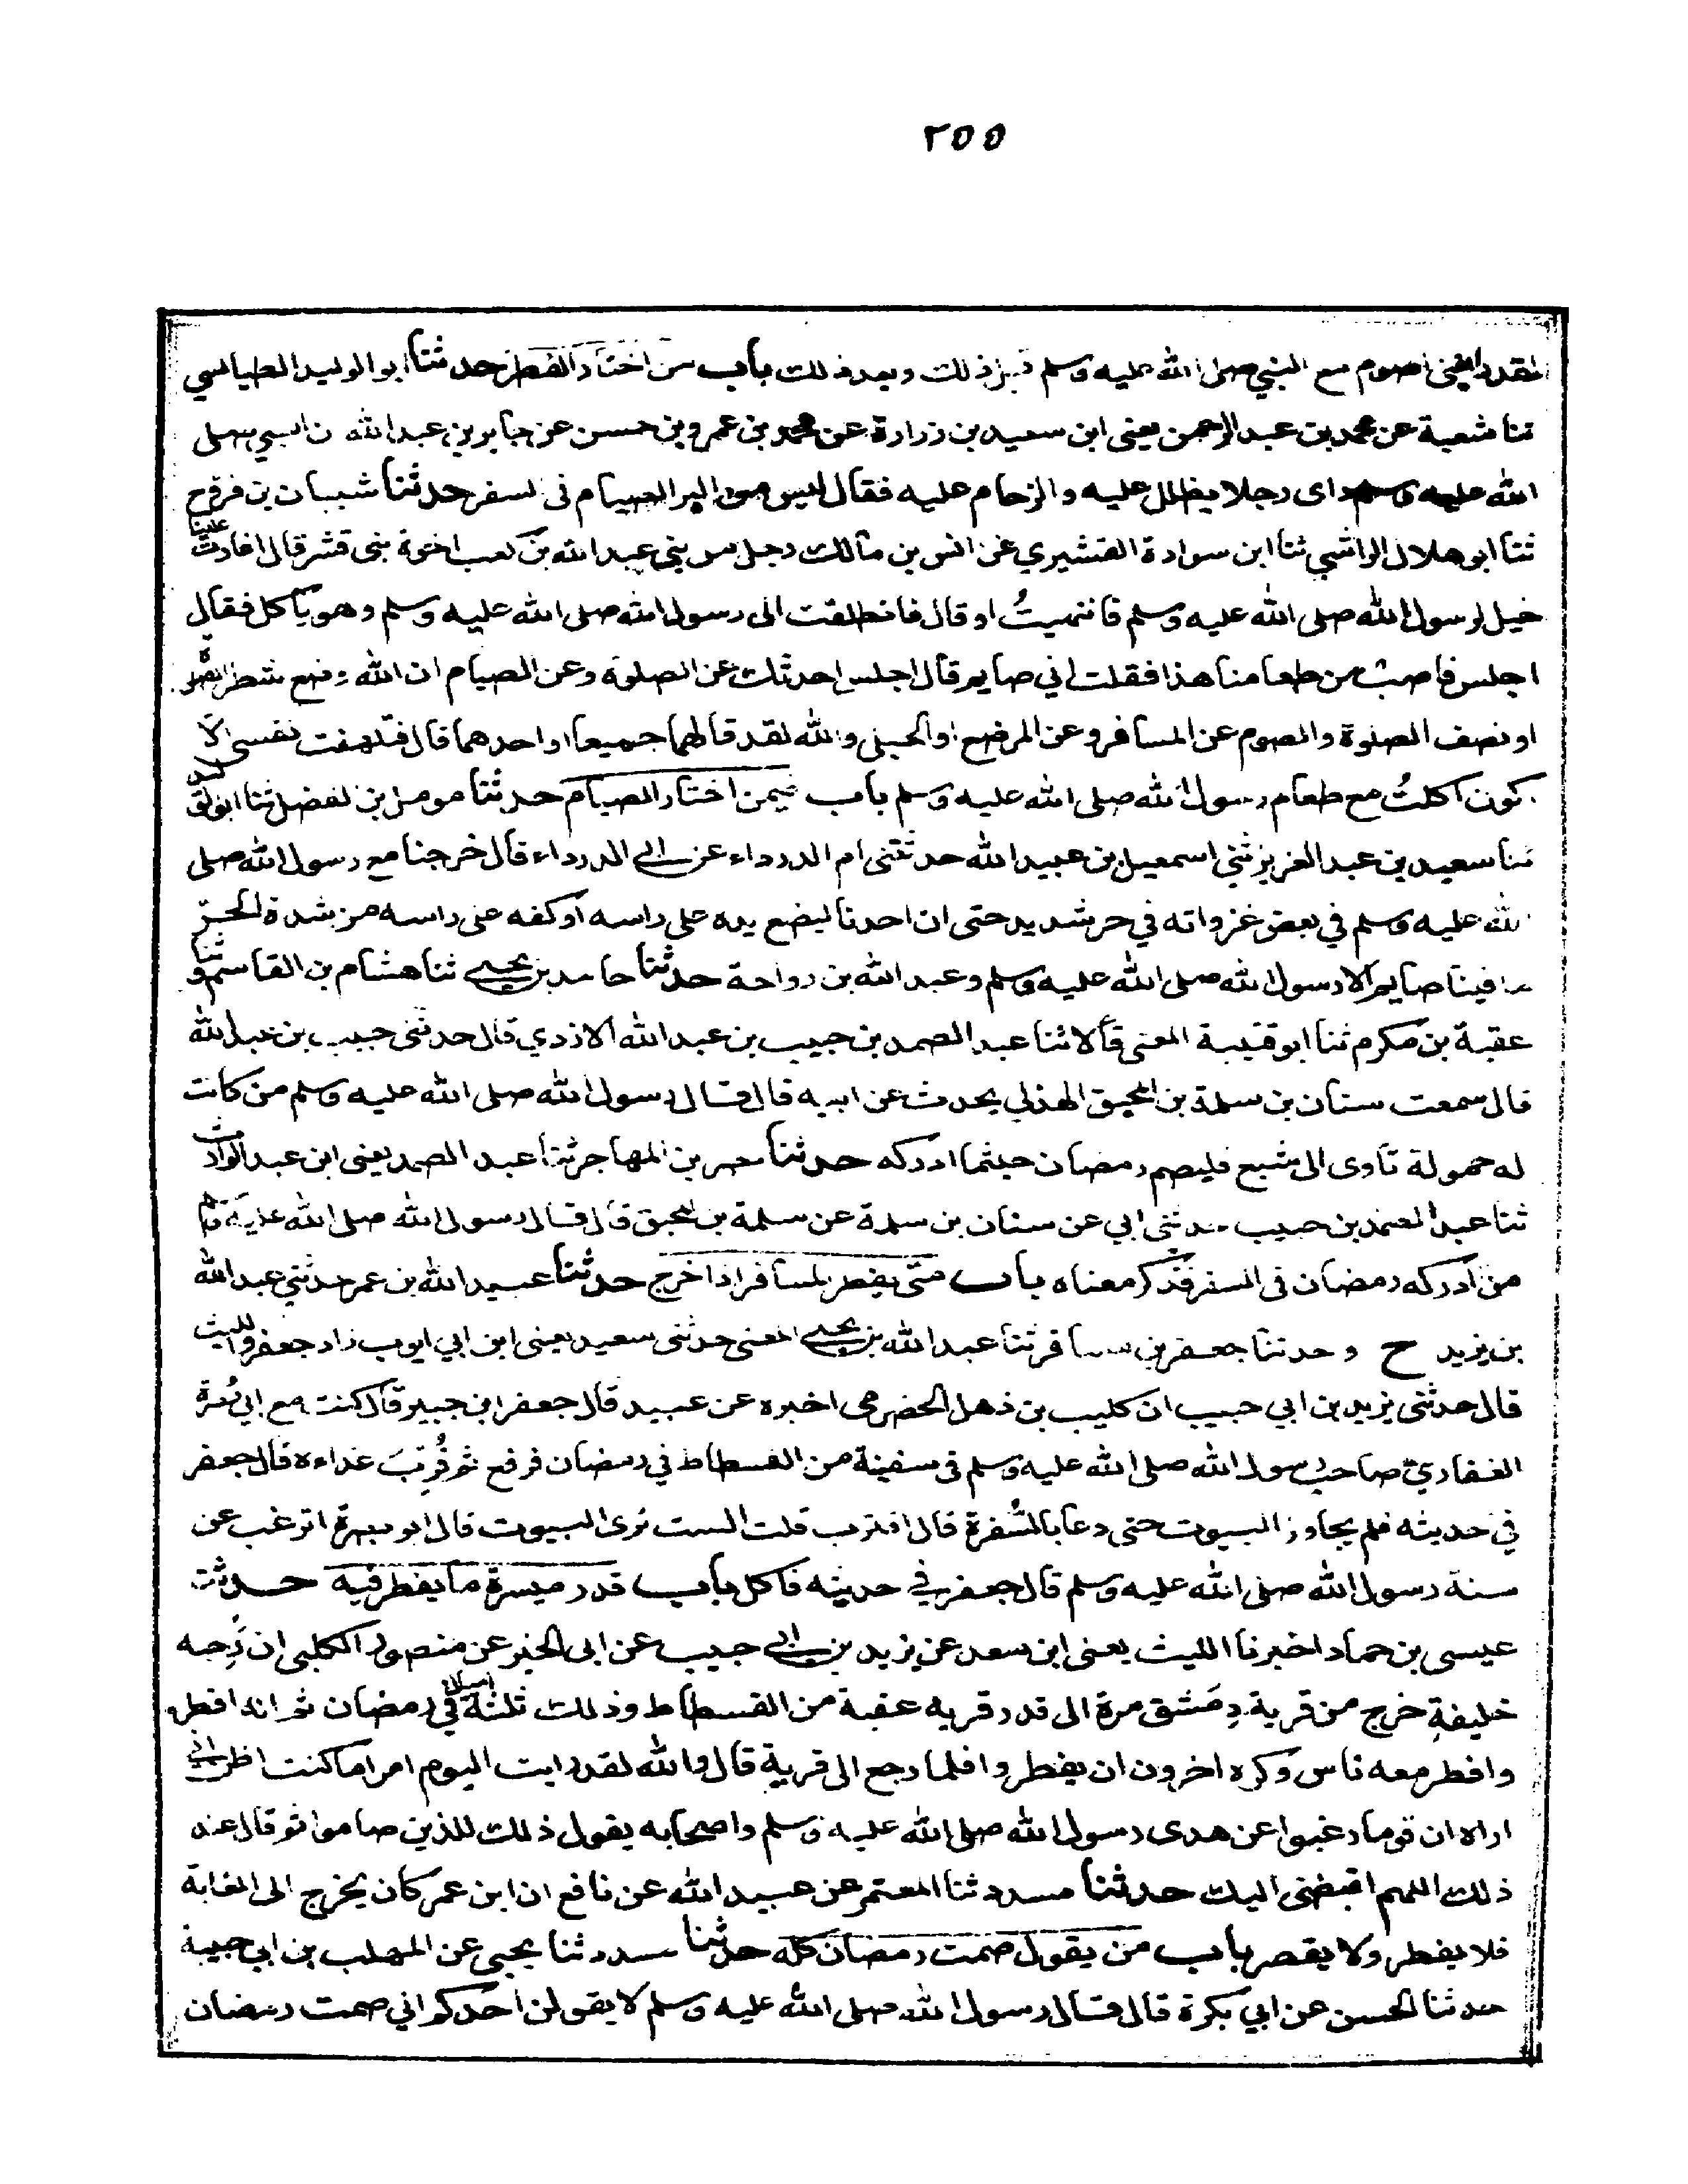 ٢٥٥
لقد رايتنى اصوم مع النبي صلى الله عليه وسلم قبل ذلك وبعد ذلك باب من اختار الفطر حدثنا ابو الوليد الطيالسي
ثنا شعبة عن محمد بن عبد الرحمن يعنى ابن سعيد بن زرارة عن محمد بن عمرو بن حسن عن جابر بن عبد الله ان النبي صلى
الله عليه وسلم راى رجلا يظلل عليه والزحام عليه فقال ليس من البر الصيام فى السفر حدثنا شيبان بن فروخ
ثنا ابو هلال الراسبي ثنا ابن سوادة القشيري عن انس بن مالك رجل من بني عبد الله بن كعب اخوة بنى قشر قال اغارت علينا
خيل لرسول الله صلى الله عليه وسلم فانتهيتُ او قال فانطلقت الى رسول الله صلى الله عليه وسلم وهو يأكل فقال
اجلس فاصب من طعامنا هذا فقلت اني صايم قال اجلس احدثك عن الصلوة وعن الصيام ان الله وضع شطر الصلوة
او نصف الصلوة والصوم عن المسافر وعن المرضع او الحبلى والله لقد قالهما جميعا او احدهما قال فتلهفت نفسى الا
اكون اكلتُ مع طعام رسول الله صلى الله عليه وسلم باب فيمن اختار الصيام حدثنا مومل بن الفضل ثنا الوليد
ثنا سعيد بن عبد العزيز ثني اسمعيل بن عبيد الله حدثتنى ام الدرداء عن ابي الدرداء قال خرجنا مع رسول الله صلى
الله عليه وسلم في بعض غزواته في حر شديد حتى ان احدنا ليضع يده على راسه او كفه على راسه من شدة الحر
ما فينا صايم الا رسول الله صلى الله عليه وسلم وعبد الله بن رواحة حدثنا حامد بن يحيى ثنا هشام بن القاسم وثنا
عقبة بن مكرم ثنا ابو قتيبة المعنى قالا ثنا عبد الصمد بن حبيب بن عبد الله الازدي قال حدثنى حبيب بن عبد الله
قال سمعت سنان بن سلمة بن المحبق الهذلي يحدث عن ابيه قال قال رسول الله صلى الله عليه وسلم من كانت
له حمولة تاوى الى شبع فليصم رمضان حيثما ادركه حدثنا نصر بن المهاجر ثنا عبد الصمد يعنى ابن عبد الوارث
ثنا عبد الصمد بن حبيب حدثني ابي عن سنان بن سلمة عن سلمة بن المحبق قال قال رسول الله صلى الله عليه وسلم
من ادركه رمضان في السفر فذكر معناه باب متى يفطر المسافر اذا خرج حدثنا عبيد الله بن عمر حدثني عبد الله
بن يزيد ح وحدثنا جعفر بن مسافر ثنا عبد الله بن يحيى المعنى حدثنى سعيد يعنى ابن ابي ايوب زاد جعفر والليث
قال حدثنى يزيد بن ابي حبيب ان كليب بن ذهل الحضرمى اخبره عن عبيد قال جعفر ابن جبير قال كنت مع ابي بُصرة
الغفاري صاحب رسول الله صلى الله عليه وسلم فى سفينة من الفسطاط في رمضان فرفع ثم قُرِّبَ غداءه قال جعفر
في حديثه فلم يجاوز البيوت حتى دعا بالسُفرة قال اقترب قلت الست ترى البيوت قال ابو بصرة اترغب عن
سنة رسول الله صلى الله عليه وسلم قال جعفر في حديثه فاكل باب قدر ميسرة ما يفطر فيه حدثنا
عيسى بن حماد اخبرنا الليث يعنى ابن سعد عن يزيد بن ابي حبيب عن ابى الخير عن منصور الكلبى ان دِحية
خليفةٍ خرج من قرية دِمَشق مرة الى قدر قرية عقبة من الفسطاط وذلك ثلثة اميال في رمضان ثم انه افطر
وافطر معه ناس وكره اخرون ان يفطروا فلما رجع الى قرية قال والله لقد رايت اليوم امرا ما كنت اظن اني
اراه ان قوما رغبوا عن هدى رسول الله صلى الله عليه وسلم واصحابه يقول ذلك للذين صاموا ثم قال عند
ذلك اللهم اقبضنى اليك حدثنا مسدد ثنا المعتمر عن عبيد الله عن نافع ان ابن عمر كان يخرج الى الغابة
فلا يفطر ولا يقصر باب من يقول صمت رمضان كله حدثنا مسدد ثنا يحيى عن المهلب بن ابي حبيبة
حدثنا الحسن عن ابي بكرة قال قال رسول الله صلى الله عليه وسلم لا يقولن احدكم اني صمت رمضان